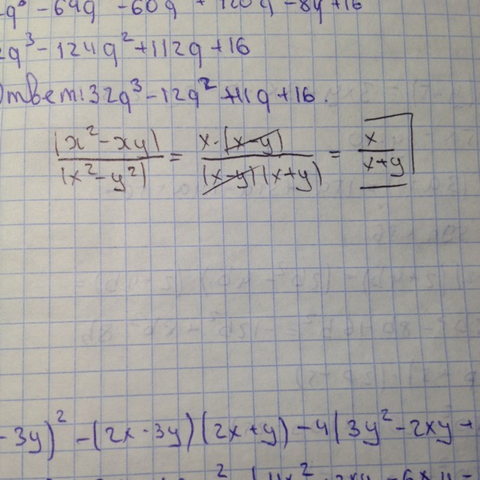 - 64q - 60q + 120q - 8q + 16
2q³ - 124q² + 112q + 16
Ответ: 32q³ - 12q² + 11q + 16.
(x² - xy) / (x² - y²) = x · (x - y) / (x - y)(x + y) = x / x + y
- 3y)² - (2x - 3y)(2x + y) - 4(3y² - 2xy +